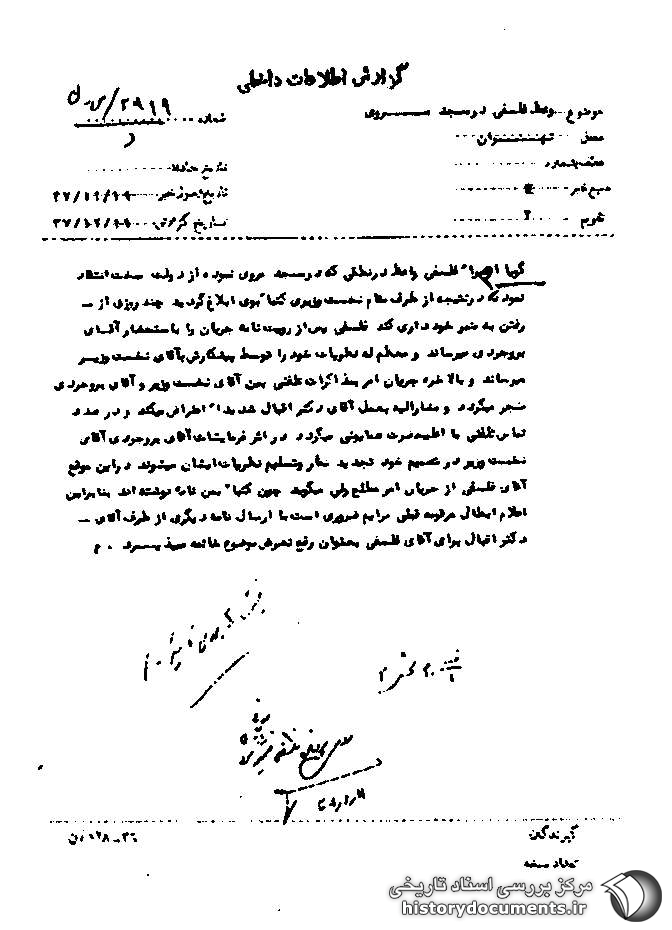 گزارش اطلاعات داخلی
موضوع وعظ فلفسی در مسجد مروی
شماره ۲۹۱۹/س-ت
محل تهران
منبع خبر
تاریخ حادثه
تاریخ وصول خبر ۳۷/۱۲/۱۹
تقویم
تاریخ گزارش ۳۷/۱۲/۱۹
گویا اخیرا" فلسفی واعظ در نطقی که در مسجد مروی نموده از دولت سخت انتقاد
نموده که در نتیجه از طرف مقام نخست وزیری کتبا" بوی ابلاغ گردید چند روزی از ـ
رفتن به منبر خودداری کند فلسفی پس از رویت نامه جریان را باستحضار آقای
بروجردی میرساند و معظم له نظریات خود را توسط پیشکارش بآقای نخست وزیر
میرساند و بالاخره جریان امر بمذاکرات تلفنی بین آقای نخست وزیر و آقای بروجردی
منجر میگردد و مشارالیه بعمل آقای دکتر اقبال شدیدا" اعتراض میکند و در صدد
تماس تلفنی با اعلیحضرت همایونی میگردد در اثر فرمایشات آقای بروجردی آقای
نخست وزیر در تصمیم خود تجدید نظر و تسلیم نظریات ایشان میشوند در این موقع
آقای فلسفی از جریان امر مطلع ولی میگوید چون کتبا" بمن نامه نوشته اند بنابراین
اعلام ابطال مرقومه قبلی برایم ضروری است با ارسال نامه دیگری از طرف آقای ـ
دکتر اقبال برای آقای فلسفی بعنوان رفع تعرض موضوع خاتمه میپذیرد . م
گیرندگان
۳۶-۱۲۸ن
تعداد نسخه
مرکز بررسی اسناد تاریخی
historydocuments.ir